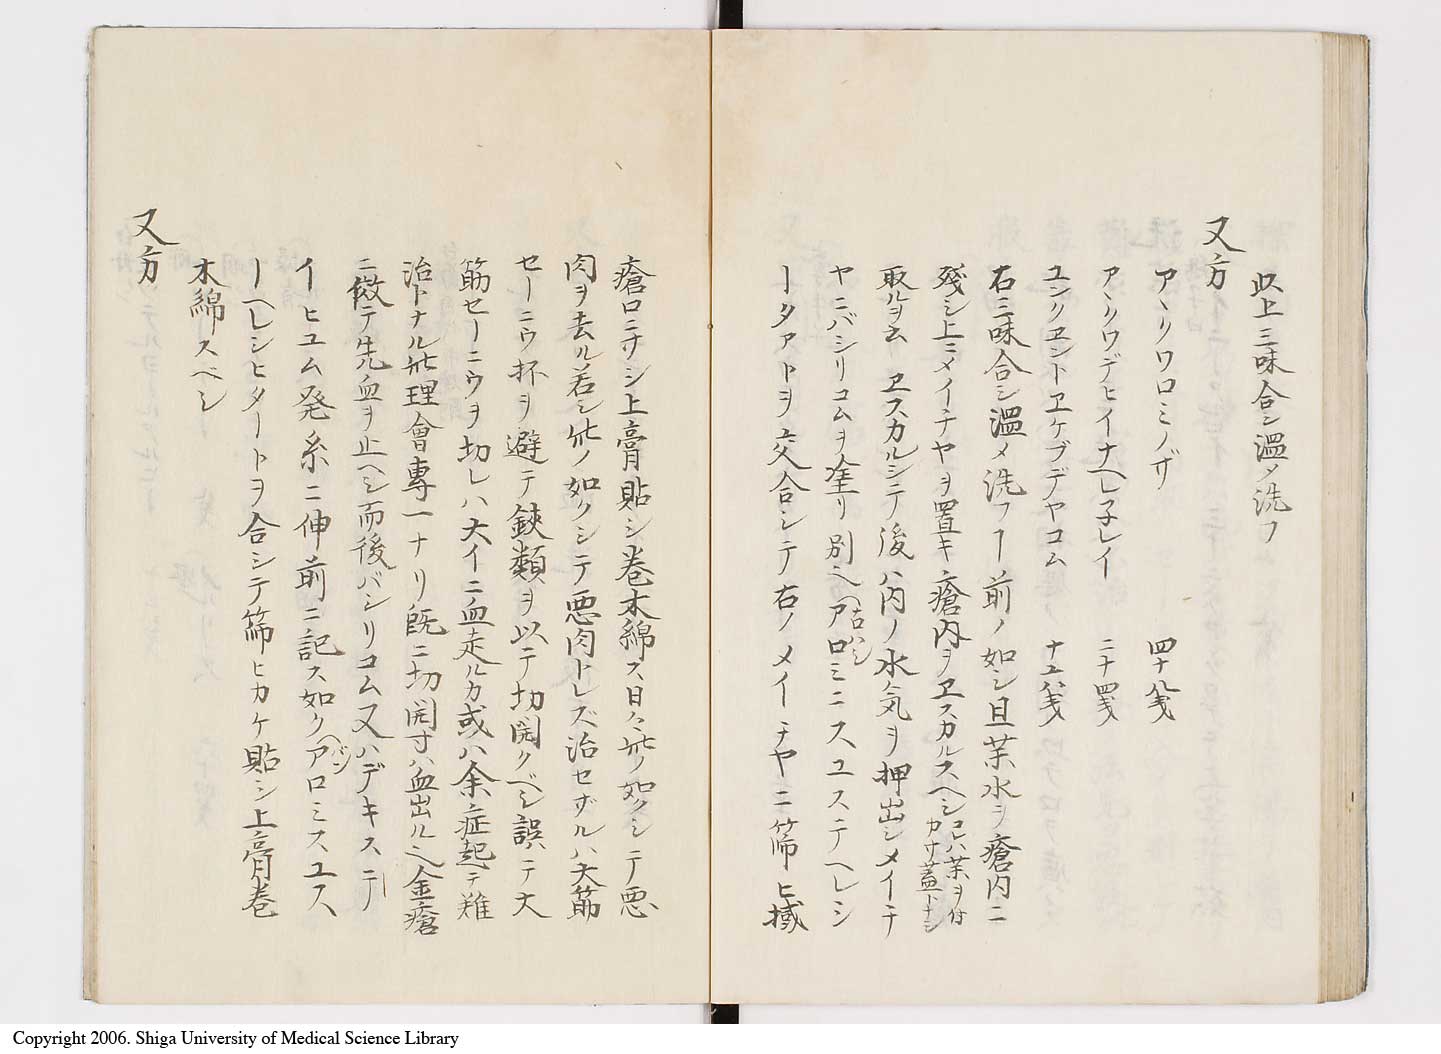 此上三味合シ温メ洗フ
又方
アヽリワロミノザ 四十八戔
アヽリウデヒイナヘレ子レイ 二十四戔
ユンクヱントヱケブデヤコム 十六戔
右三味合シ温メ洗フー前ノ如シ且茉水ヲ瘡内ニ
残シ上ニメイチヤヲ置キ瘡内ヲヱスカルスヘシコレハ茉ヲ付カサ蓋トナシ
取ルヲ云 ヱスカルシテ後ハ内ノ水気ヲ押出シメイチ
ヤニバシリコムヲ塗リ別ヘアロミニスユステヘレシ
ータアトヲ交合シテ右ノメイーチヤニ篩ヒ掞
瘡口ニサシ上膏貼シ巻木綿ス日々此ノ如クシテ悪
肉ヲ去ル若シ此ノ如クシテ悪肉トレズ治セザルハ大筋
セーニウ抔ヲ避テ鋏類ヲ以テ切開クベシ誤テ大
筋セーニウヲ切レハ大イニ血走ルカ或ハ余症起テ難
治トナル此理會專一ナリ既ニ切開寸ハ血出ル之金瘡
ニ倣テ先血ヲ止ヘシ而後バシリコム又ハデキステ
イヒユム発糸ニ伸前ニ記ス如クアロミスユス
ーヘレシヒタートヲ合シテ篩ヒカケ貼シ上膏巻
木綿スベシ
又方
Copyright 2006. Shiga University of Medical Science Library